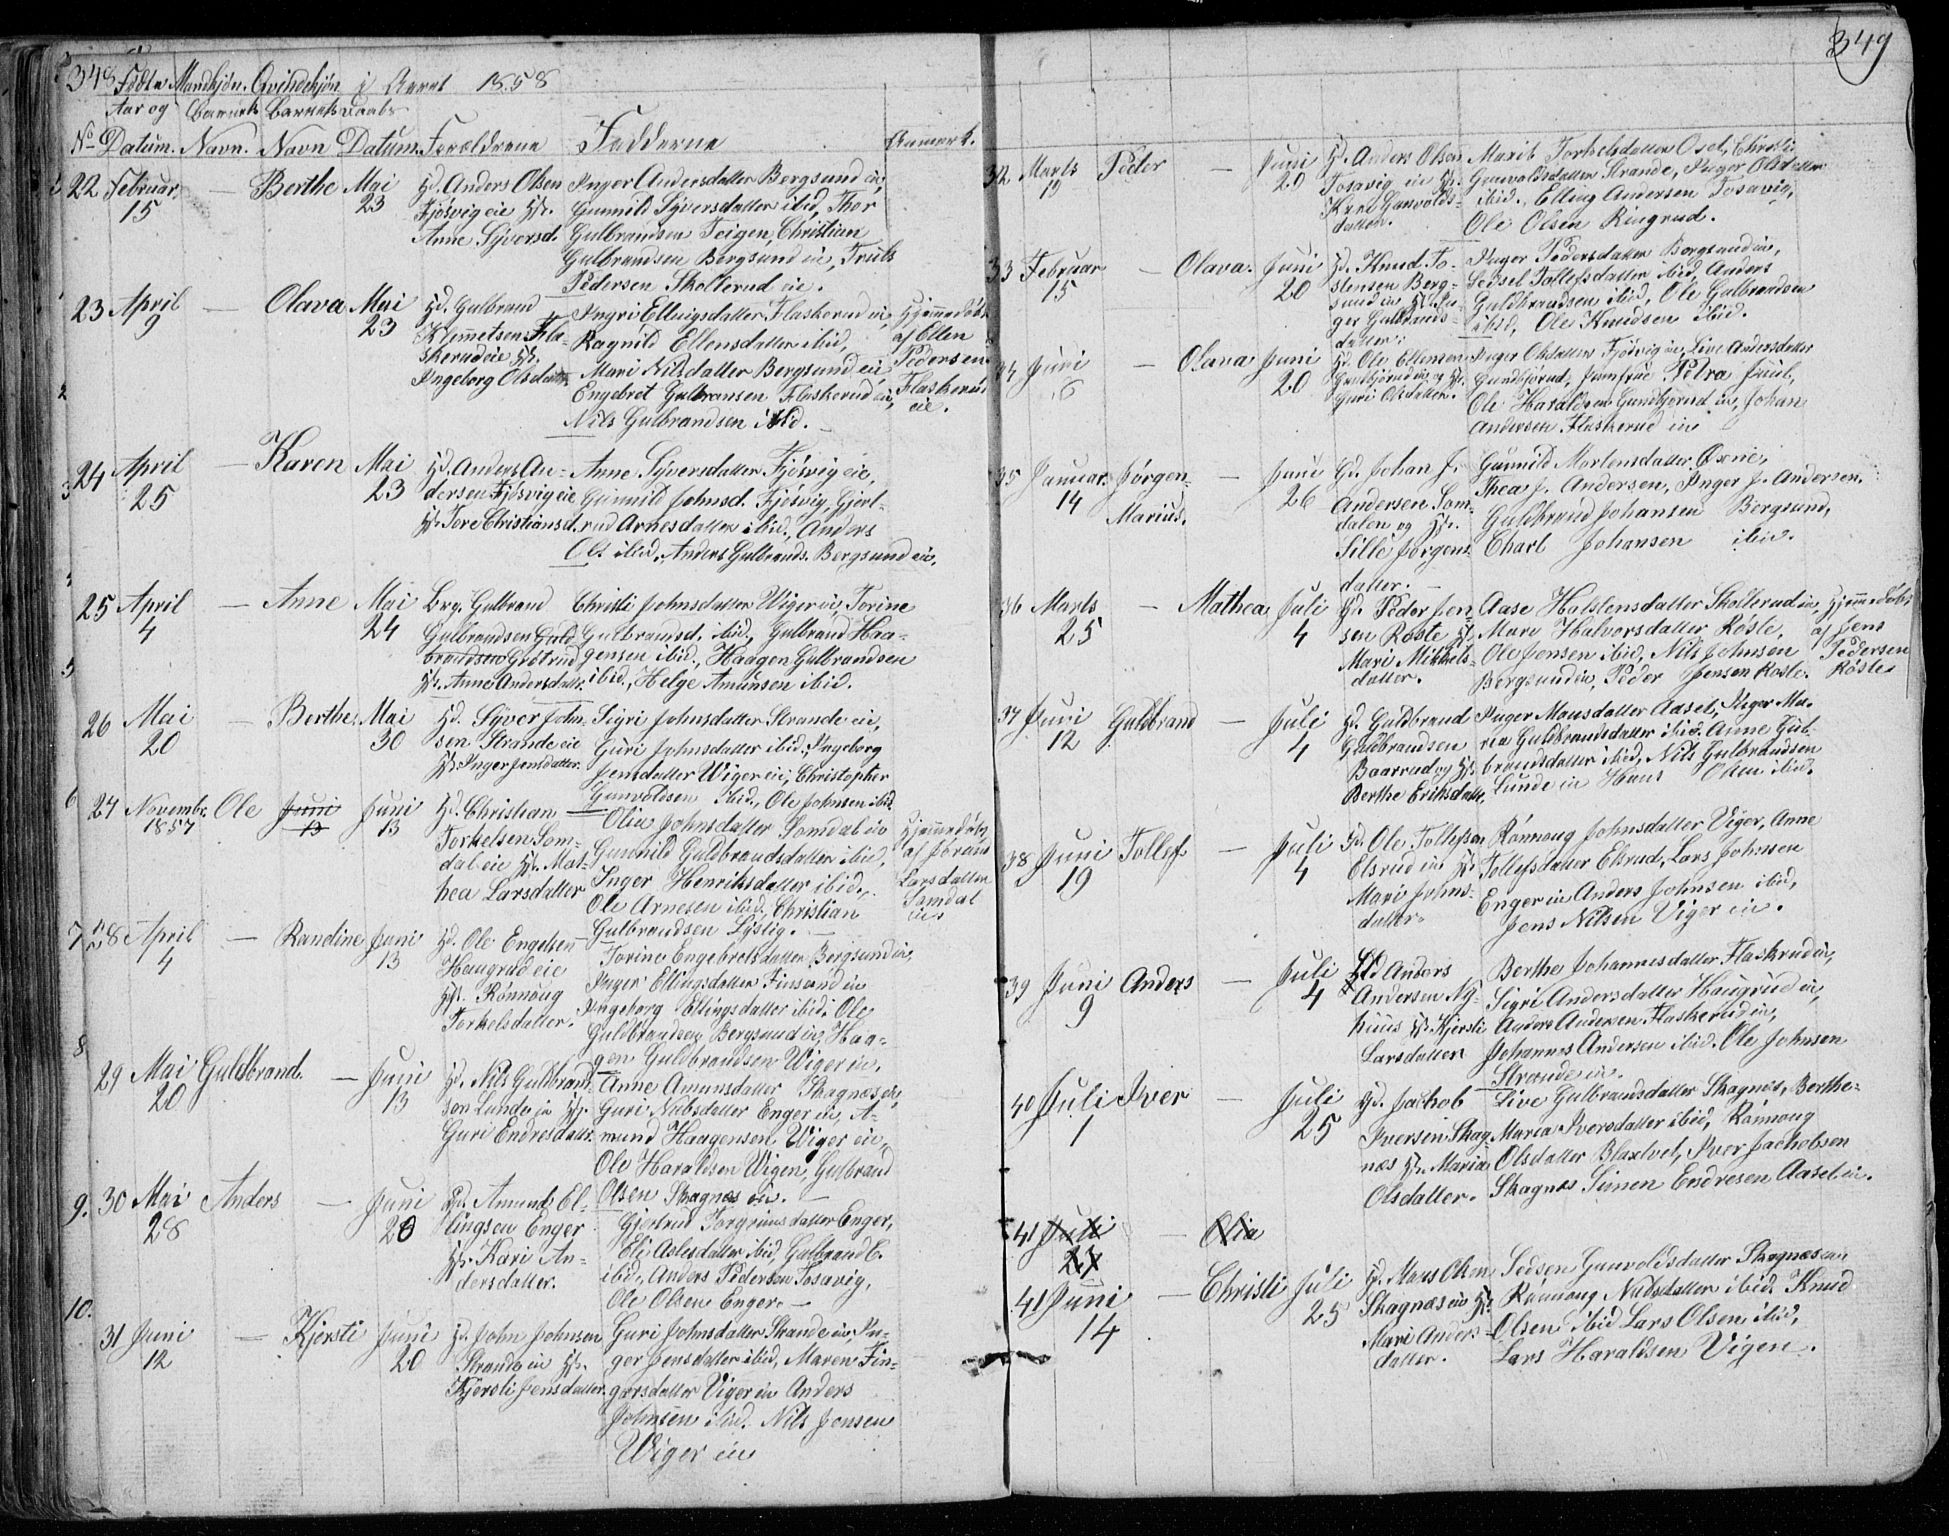 348 Fødte Mandkjön. Qvindekjön i Aaret 1858
Aar og Barnets Barnets Daabs
No Datum. Navn. Navn Datum. Forældrene Fadderne Anmærk.
22 Februar 15 — Berthe Mai 23
Hd. Anders Olsen
Fjösvig eie Hst.
Anne Syversd.
Inger Andersdatter Bergsund eie,
Gunnild Syversdatter ibid, Thor
Gulbrandsen Teigen, Christian
Gulbrandsen Bergsund eie, Truls
Pedersen Skollerud eie.
23 April 9 — Olava Mai 23
Hd. Gulbrand
Klemmetsen Fla-
skerud eie Hst.
Ingeborg Olsdatter
Ingri Ellingsdatter Flaskerud eie,
Ragnild Ellensdatter ibid,
Mari Nilsdatter Bergsund eie
Engebret Gulbransen Flaskerud eie,
Nils Gulbrandsen ibid.
Hjemmedøbt
af Ellen
Pedersen
Flaskerud
eie.
24 April 25 — Karen Mai 23
Hd. Anders An-
dersen Fjösvig eie
Hst. Tore Christiansd.
Anne Syversdatter Fjösvig eie,
Gunnild Johnsd. Fjösvig, Gjert-
rud Arnesdatter ibid., Anders
Ols. ibid., Anders Gulbrands. Bergsund eie.
25 April 4 — Anne Mai 24
Brg. Gulbrand
Gulbrandsen Guld-
brandsen Gröterud
Hst. Anne Andersdatter
Christi Johnsdatter Wiger eie, Torine
Gulbrandsd. ibid., Gulbrand Haa-
gensen ibid., Haagen Gulbrandsen
ibid., Helge Amunsen ibid.
26 Mai 20 — Berthe Mai 30
Hd. Syver John-
sen Strande eie
Hst. Inger Jensdatter.
Sigri Johnsdatter Strande eie,
Guri Johnsdatter ibid, Ingeborg
Jensdatter Wiger eie, Christopher
Gunvoldsen ibid., Ole Johnsen ibid.
27 Novembr. 1857 Ole Juni 13 Juni 13
Hd. Christian
Torkelsen Som-
dal eie Hst. Mat-
hea Larsdatter
Olia Johnsdatter Somdal eie
Gunnild Guldbrandsdatter ibid,
Inger Henriksdatter ibid.,
Ole Arnesen ibid., Christian
Gulbrandsen Lystig.
Hjemmedøbt
af Joran
Larsdatter
Somdal
eie.
28 April 4 — Randine Juni 13
Hd. Ole Engelsen
Haugrud eie
Hst. Rönnoug
Torkelsdatter.
Torine Engebretsdatter Bergsund eie,
Inger Ellingsdatter Finsand eie
Ingeborg Ellingsdatter ibid. Ole
Guldbrandsen Bergsund eie, Haa-
gen Guldbrandsen Wiger eie.
29 Mai 20 Guldbrand. — Juni 13
Hd. Nils Guldbrand-
sen Lunde eie Hst.
Guri Endresdatter
Anne Amunsdatter Skagnæs eie,
Guri Nubsdatter Enger eie, A-
mund Haagensen Wiger eie,
Ole Haraldsen Wigen, Gulbrand
Olsen Skagnæs eie.
9. 30 Mai 28 Anders — Juni 20
Hd. Amund El-
lingsen Enger
Hst. Kari An-
dersdatter.
Gjertrud Torgrimsdatter Enger,
Eli Aslesdatter ibid, Gulbrand E.
ibid., Anders Pedersen Tosavig,
Ole Olsen Enger.
10. 31 Juni 12 — Kjersti Juni 20
Hd. John Johnsen
Strande eie Hst.
Kjersti Jensdatter.
Guri Johnsdatter Strande eie, In-
ger Jensdatter ibid, Maren Fin-
garsdatter Viger eie Anders
Johnsen ibid. Nils Jensen
Wiger eie
349
32 Marts 19 Peder — Juni 20
Hd. Anders Olsen
Tosavig eie Hst.
Kari Gunvolds-
datter.
Marit Torkelsdatter Osel, Christi
Gunvoldsdatter Strande, Inger Olsdatter
ibid., Elling Andersen Tosavig,
Ole Olsen Ringrud.
33 Februar 15 — Olava. Juni 20
Hd. Knud To-
stensen Berg-
sund eie Hst. In-
ger Gulbrands-
datter.
Inger Pedersdatter Bergsund eie,
Sedsel Tollefsdatter ibid, Anders
Guldbrandsen ibid, Ole Gulbrandsen
ibid, Ole Knudsen ibid.
34 Juni 6 — Olava Juni 20
Hd. Ole Ellensen
Gunbjörud eie og Hst.
Guri Olsdatter.
Inger Olsdatter Fjösvig eie, Live Andersdatter
Gunbjørud, Jumfrue Petra Juul,
Ole Haraldsen Gunbjørud eie, Johan
Andersen Flaskerud eie
35 Januar 14 Jörgen Marius. — Juni 26
Hd. Johan J.
Andersen Som-
dalen og Hst.
Sille Jörgens-
datter.
Gunnild Mortensdatter
Thea J. Andersen, Inger J. Andersen.
Guldbrand Johansen Bergsund,
Charl Johansen ibid.
36 Marts 25 — Mathea Juli 4
Hd. Peder Jen-
sen Röste Hst.
Mari Mikkels-
datter.
Aase Halstensdatter Skollerud eie,
Mari Halvorsdatter Röste,
Ole Jensen ibid, Nils Johnsen
Bergsund eie, Peder Jensen Röste.
Hjemmedøbt
af Jens
Pedersen
Röste
37 Juni 12 Guldbrand — Juli 4
Hd. Guldbrand
Guldbrandsen
Baarrud og Hst.
Berthe Eriksdatter
Inger Mousdatter Aasel, Inger Ma-
ria Guldbrandsdatter ibid. Anne Gul-
brandsdatter ibid, Nils Gulbrandsen
Lunde eie Hans Olsen ibid.
38 Juni 19 Tollef — Juli 4
Hd. Ole Tollefsen
Elsrud eie Hst.
Mari Johns-
datter.
Rönnoug Johnsdatter Viger, Anne
Tollefsdatter Elsrud, Lars Johnsen
Enger eie Anders Johnsen ibid,
Jens Nilsen Viger eie.
39 Juni 9 Anders — Juli 4
Hd Anders
Andersen Ny-
huus Hst. Kjersti
Larsdatter
Berthe Johannesdatter Flaskrud eie,
Sigri Andersdatter Haugrud eie,
Anders Andersen Flaskerud eie,
Johannes Andersen ibid. Ole Johnsen
Strande eie.
40 Juli 1 Iver — Juli 25
Hd. Jachob
Iversen Skag-
nes Hst. Maria
Olsdatter.
Live Gulbrandsdatter Skagnes, Berthe-
Maria Iversdatter ibid, Rönnoug
Olsdatter Blaxtvet, Iver Jachobsen
Skagnes Simen Endresen Aasel eie.
41 Juli 27 — Olia
41 Juni 14 — Christi Juli 25
Hd. Mons Olsen
Skagnæs eie Hst.
Mari Anders-
datter.
Sedsen Gunvoldsdatter Skagnæs eie
Rönnoug Nubsdatter ibid. Knud
Olsen ibid Lars Olsen ibid,
Lars Haraldsen Vigen.